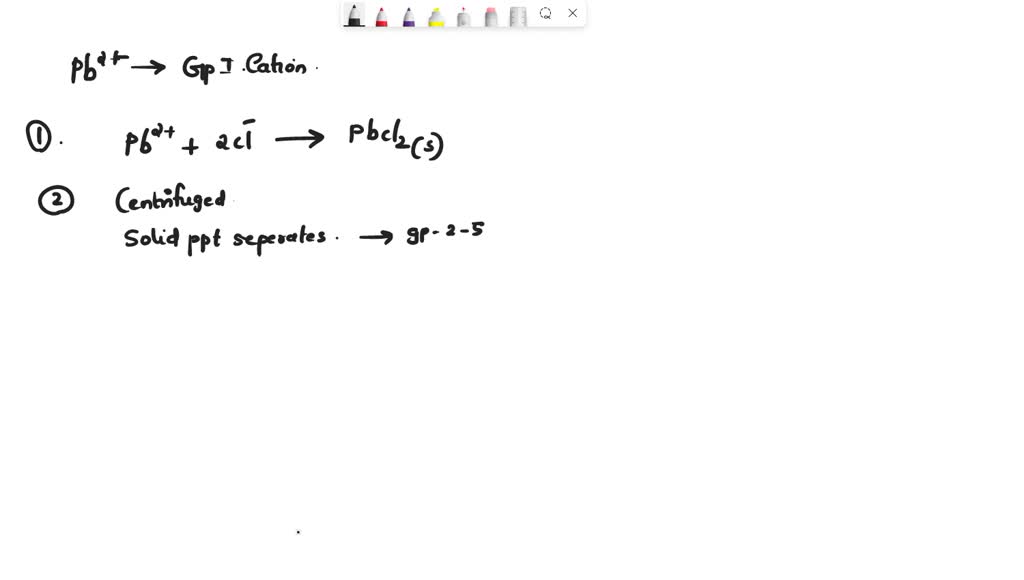 Pb²⁺ → Gp I Cation.
① . Pb²⁺ + 2Cl⁻ → PbCl₂(s)
② Centrifuged.
Solid ppt seperates. → gp- 2-5